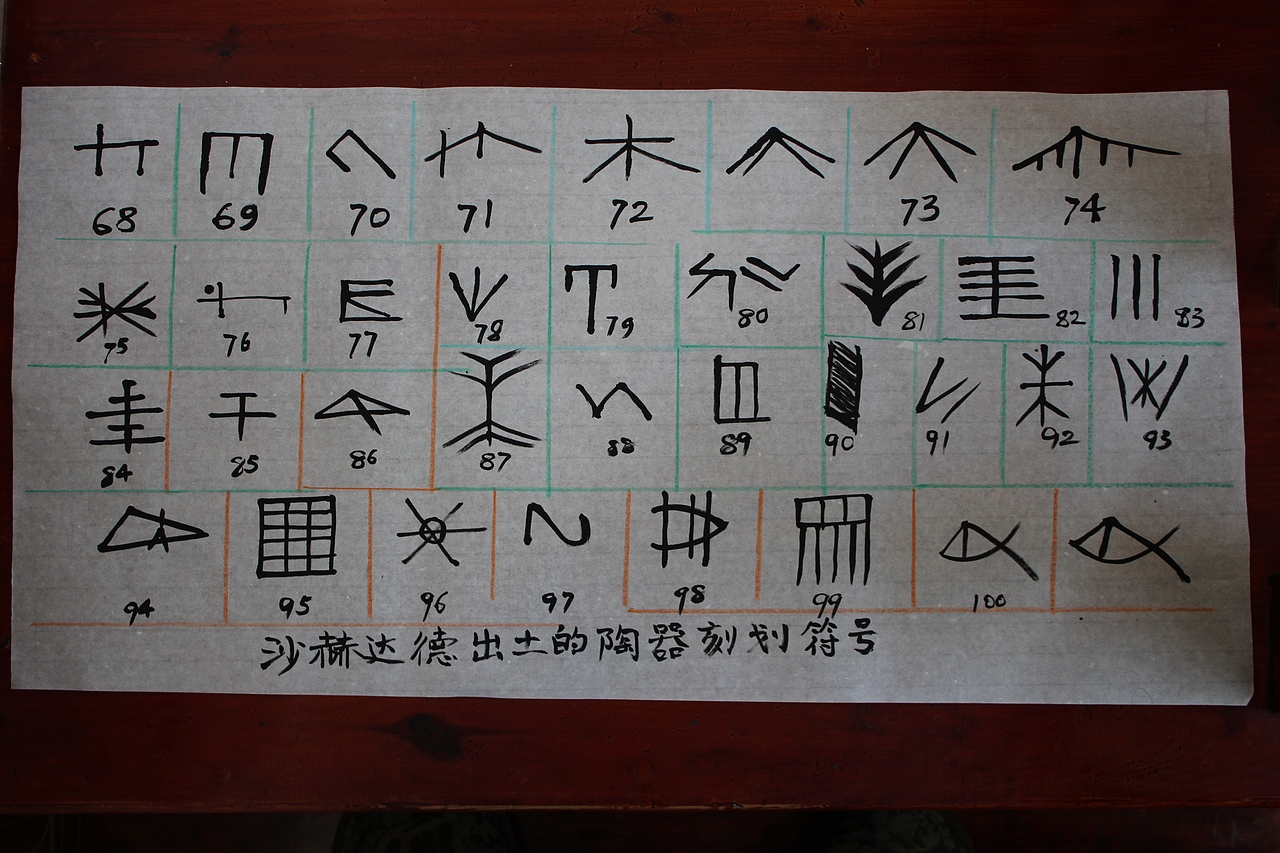 68 69 70 71 72 73 74
75 76 77 78 79 80 81 82 83
84 85 86 87 88 89 90 91 92 93
94 95 96 97 98 99 100
沙赫达德出土的陶器刻划符号